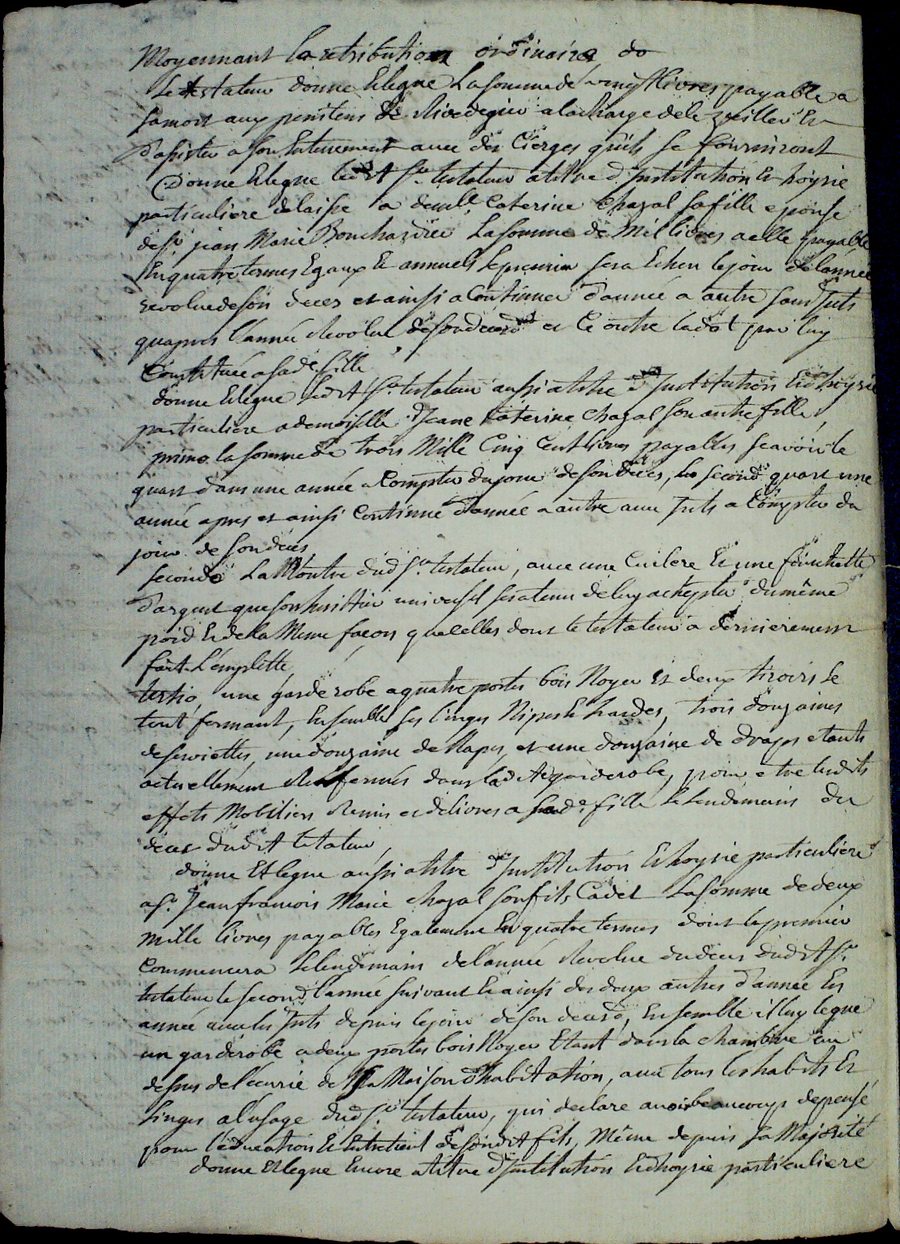 Moyennant la retribution ordinaire do
le testateur donne Et legue La somme de vingt livres payable a
sa mort aux penitens de Rivedegier a la charge de le veiller Et
d'assister a son Enterrement avec des Cierges qu'ils se fourniront
Donne Et legue ledit Sr. testateur a titre d'Institution Et hoyrie
particuliere delaisse a demlle. Caterine Chazal sa fille epouse
de Sr. jean Marie Bonchardier La somme de Mil livres a elle payable
En quatre termes Egaux Et annuels le premier sera Echeu le jour de l'année
revolue de son deces et ainsi a Continuer d'année a autre sans Jnts
qu'apres l'année Revolue de son deces et Ce outre la dot par luy
Constituée a sade. fille
donne Et legue ledit Sr. testateur aussi a titre d'Institution Et hoyrie
particuliere a demoiselle Jeane Caterine Chazal son autre fille,
primo la somme de trois Mille Cinq Cent livres payables scavoir le
quart dans une année a Compter du jour de son deces, le second quart une
année apres et ainsi Continué d'année a autre avec Jnts a Compter du
jour de son deces
secondo La Montre dud. Sr. testateur, avec une Cuilere Et une fourchette
d'argent que son heritier universel sera tenu de luy achepter du même
poid Et de la Meme façon que celles dont le testateur a dernierement
fait L'emplette
tertio, une garderobe a quatre portes bois Noyer Et deux tiroirs le
tout fermant, Ensemble ses linges Nipes Et hardes, trois douzaines
de serviettes, une douzaine de Napes, et une douzaine de draps etants
actuellement Renfermés dans ladite garderobe, pour etre lesdits
effets Mobiliers Remis et delivres a sade. fille le lendemain du
deces dudit testateur,
donne Et legue aussi a titre d'Institution Et hoyrie particuliere
a Sr. Jean francois Marie Chazal son fils Cadet La somme de deux
Mille livres payables Egalement En quatre termes dont le premier
Commencera le lendemain de l'année Revolue du deces dudit Sr.
testateur le second l'année suivant Et ainsi des deux autres d'année En
année avec les Jnts depuis le jour de son deces, Ensemble il luy legue
un garderobe a deux portes bois Noyer Etant dans la chambre au
dessus de l'écurie de sa Maison d'habitation, avec tous les habits Et
linges a l'usage dud. Sr. testateur, qui declare avoir beaucoup depensé
pour l'éducation Et Entretient de sondit fils, Même depuis sa Majorité
donne Et legue Encore a titre d'Institution Et hoyrie particuliere